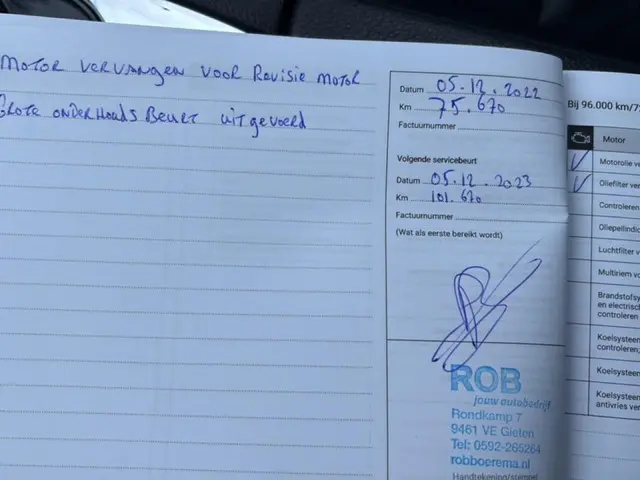 MOTOR VERVANGEN VOOR Revisie MOTOR
GROTE ONDERHOUDS BEURT UITGEVOERD
Datum 05.12.2022
Km 75.670
Factuurnummer
Volgende servicebeurt
Datum 05.12.2023
Km 101.670
Factuurnummer
(Wat als eerste bereikt wordt)
ROB
jouw autobedrijf
Rondkamp 7
9461 VE Gieten
Tel: 0592-265264
robboerema.nl
Handtekening/stempel
Bij 96.000 km/7
Motor
Motorolie ve
Oliefilter ver
Controleren
Oliepeilindic
Luchtfilter v
Multiriem vo
Brandstofsy
en electrisch
controleren
Koelsysteen
controleren;
Koelsysteen
Koelsysteen
antivries ver